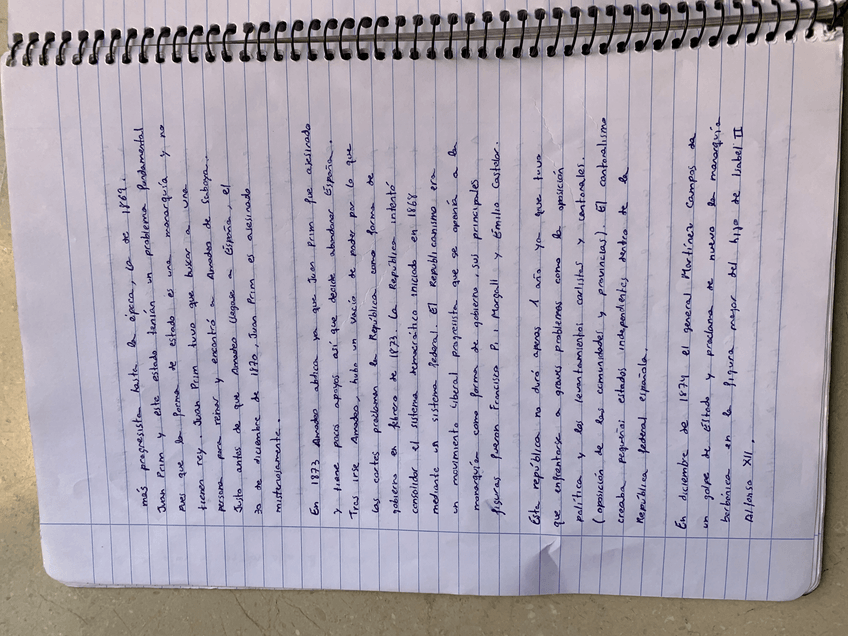 más progresista hasta la época, la de 1869.
Juan Prim y este estado tenían un problema fundamental
pues que la forma de estado es una monarquía y no
tienen rey. Juan Prim tuvo que buscar a una
persona para reinar y encontró a Amadeo de Saboya.
Justo antes de que Amadeo llegase a España, el
30 de diciembre de 1870, Juan Prim es asesinado
misteriosamente.
En 1873 Amadeo abdica ya que Juan Prim fue asesinado
y tiene pocos apoyos así que decide abandonar España.
Tras irse Amadeo, hubo un vacío de poder por lo que
las cortes proclaman la República como forma de
gobierno en febrero de 1873. La República intentó
consolidar el sistema democrático iniciado en 1868
mediante un sistema federal. El Republicanismo era
un movimiento liberal progresista que se oponía a la
monarquía como forma de gobierno, sus principales
figuras fueron Francisco Pi i Margall y Emilio Castelar.
Esta república no duró apenas 1 año ya que tuvo
que enfrentarse a graves problemas como la oposición
política y los levantamientos carlistas y cantonales.
(oposición de las comunidades y provincias). El cantonalismo
creaba pequeños estados independientes, dentro de la
República federal española.
En diciembre de 1874 el general Martínez Campos da
un golpe de Estado y proclama de nuevo la monarquía
borbónica en la figura mayor del hijo de Isabel II
Alfonso XII.